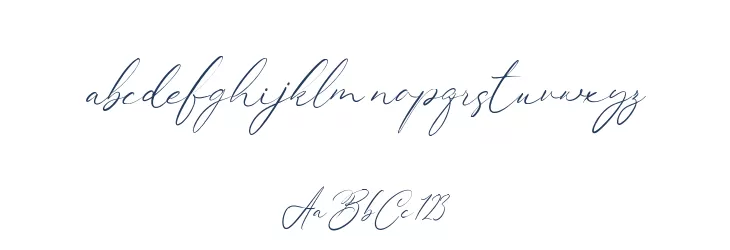 abcdefghijklmnopqrstuvwxyz
AaBbCc123